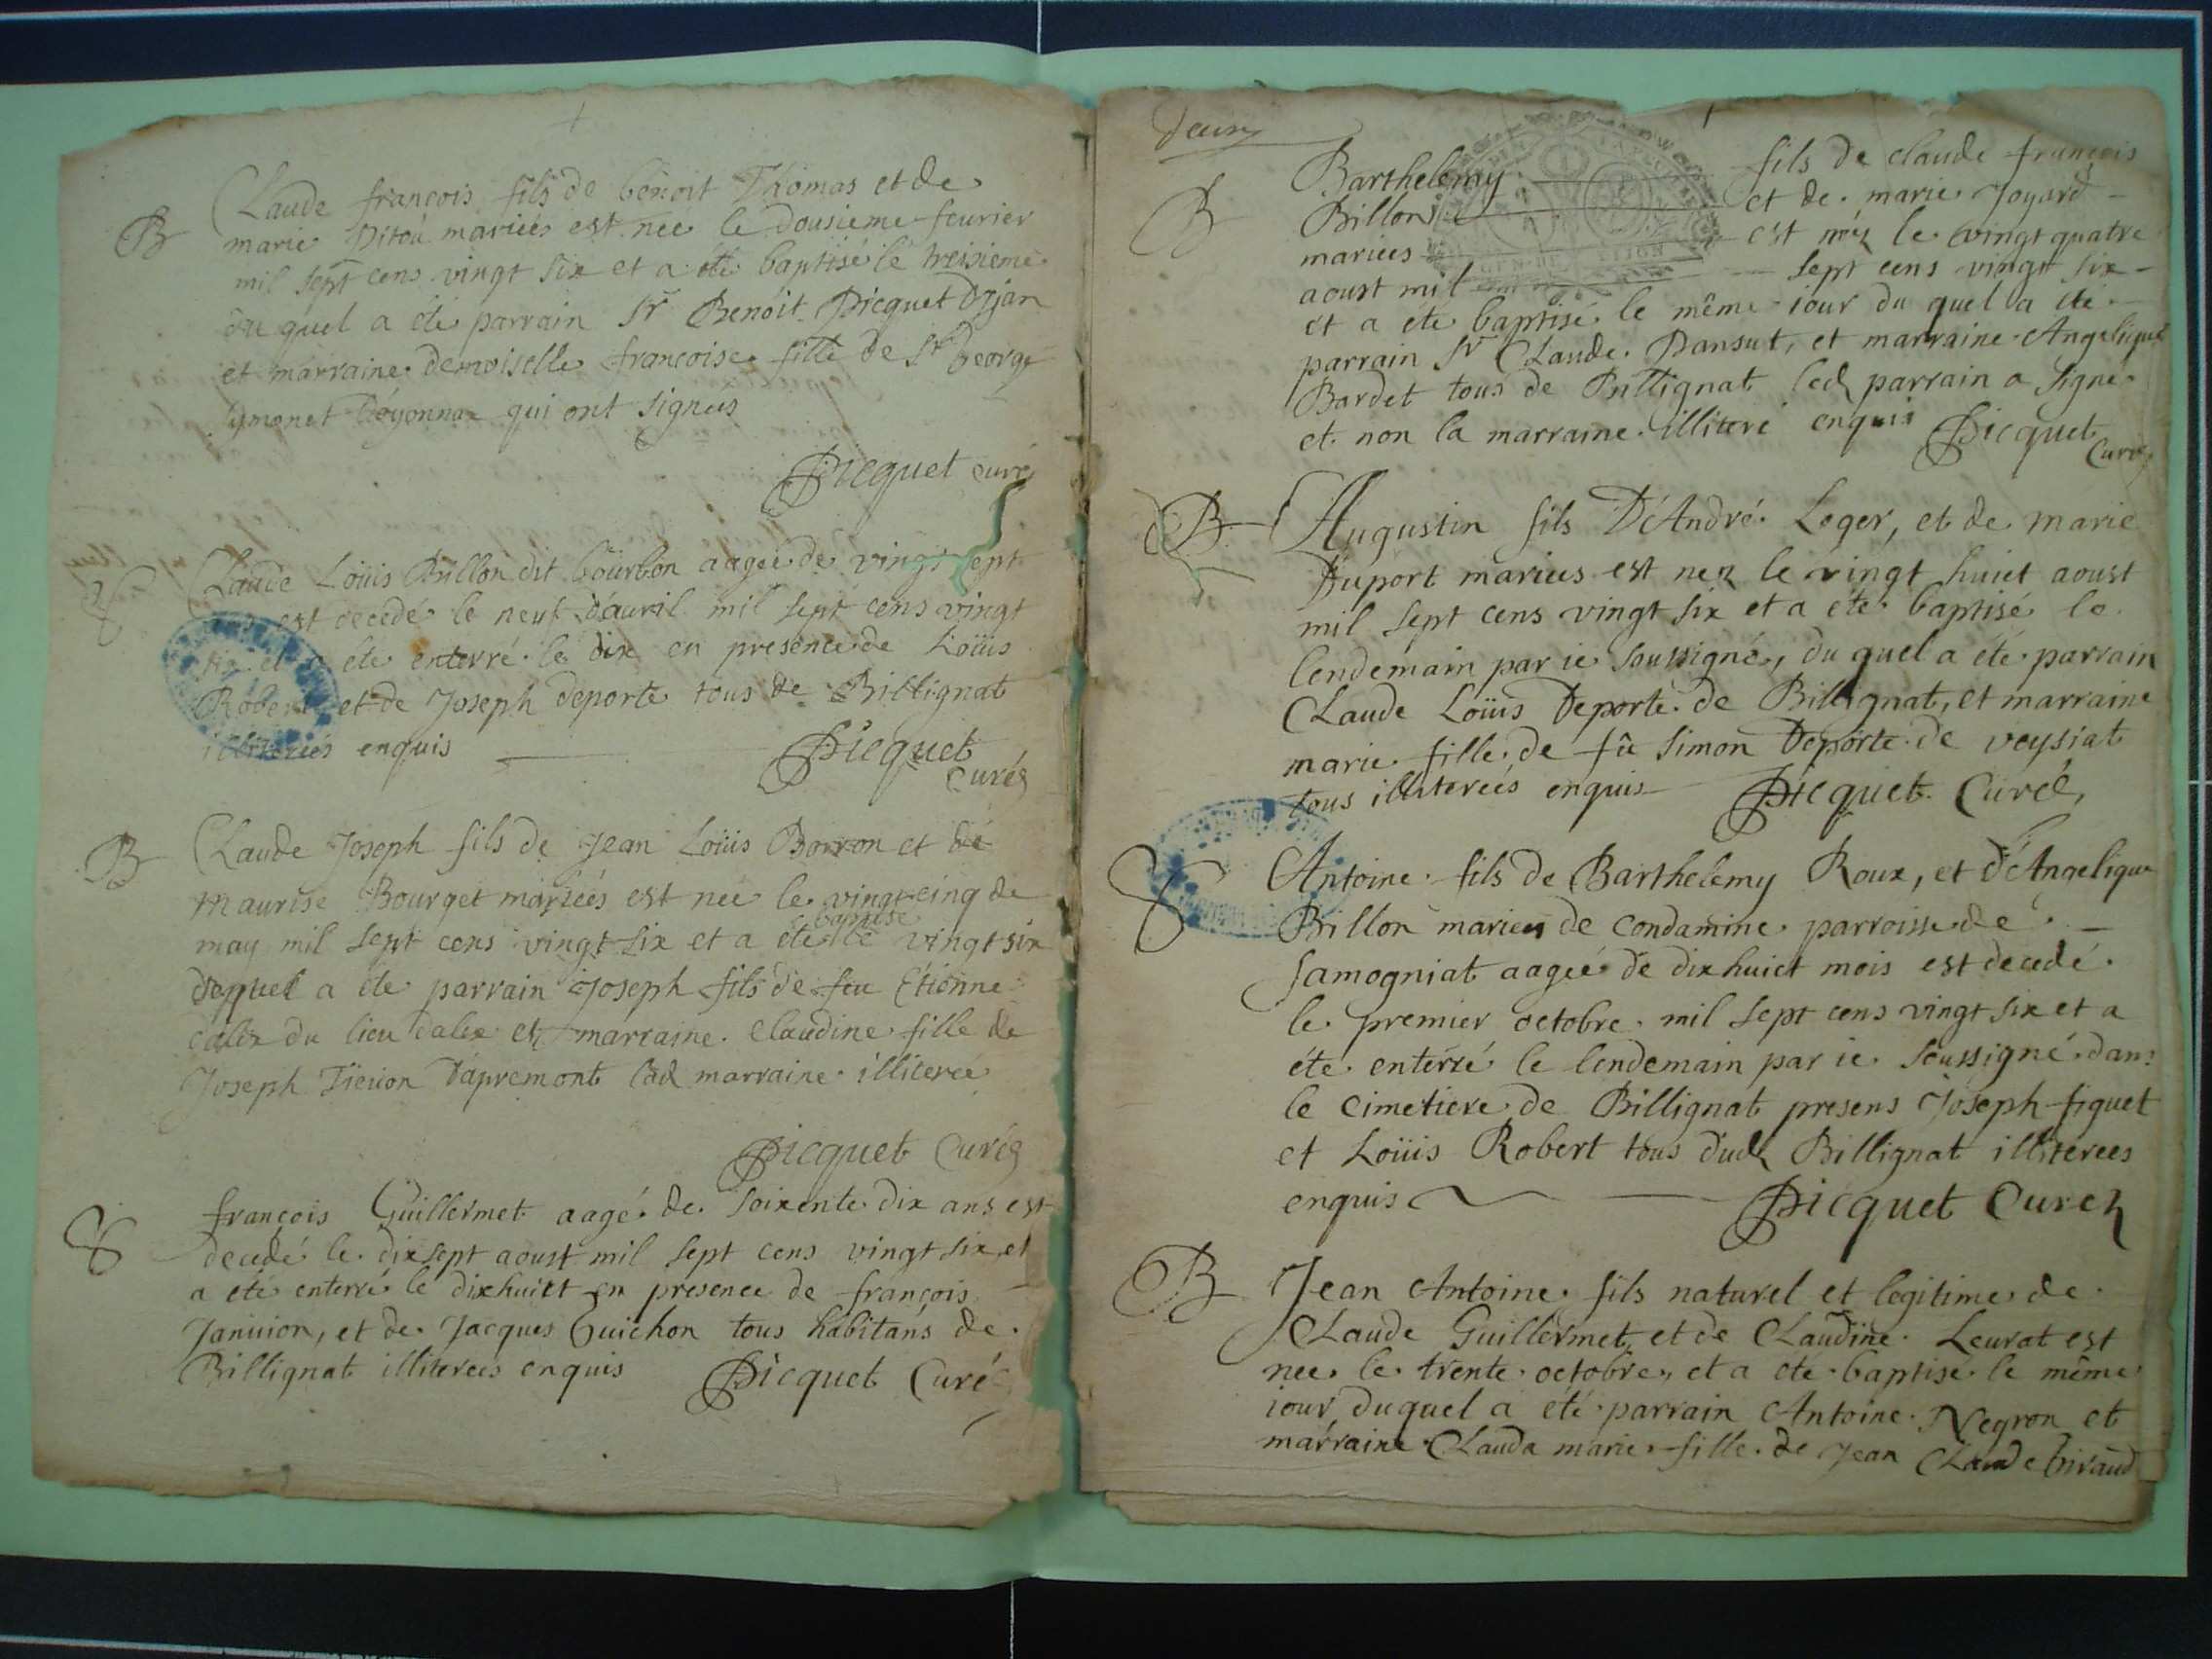 B
Claude françois fils de benoit Thomas et de
marie Pitou mariés est née le dousieme feurier
mil sept cens vingt six et a été baptisé le treisieme
du quel a été parrain Sr Benoit Picquet Djan
et marraine demoiselle françoise fille de Sr George
Symonet Doyonnax qui ont signees
Picquet curé
S
Claude Loüis Brillon dit bourbon aagée de vingt sept
est decedé le neuf d'auril mil sept cens vingt
six et a eté enterré le dix en presence de Loüis
Robert et de Joseph deporte tous de Billignat
illiterées enquis
Picquet
Curéz
B
Claude Joseph fils de Jean Loüis Borron et de
Maurise Bourget mariées est née le vingt cinq de
baptisé
may mil sept cens vingt six et a eté le vingt six
duquel a été parrain Joseph fils de feu Etienne
dalex du lieu dalex et marraine Claudine fille de
Joseph Tieuon dápremont lad marraine illiterée
Picquet Curéz
S
françois Guillermet aagé de soixente dix ans est
decedé le dixsept aoust mil sept cens vingt six et
a eté enterré le dixhuict en presence de françois
Januion, et de Jacques Guichon tous habitans de
Billignat illiterees enquis Picquet Curé
deux
B
Barthelemy fils de claude françois
Billon et de marie Joyard
mariees est néz le vingt quatre
aoust mil sept cens vingt six
et a ete baptisé le même iour du quel a été
parrain Sr Claude Pansut, et marraine Angelique
Bardet tous de Billignat led parrain a signé
et non la marraine illiteré enquis Picquet
Curé
B
Augustin fils D'André Leger, et de marie
Duport mariees est nez le vingt huict aoust
mil sept cens vingt six et a eté baptisé le
lendemain par ie soussigné, du quel a été parrain
Claude Loüis Deporte de Billignat, et marraine
marie fille de fû Simon Deporte de veysiat
tous illiterées enquis Picquet Curéé
S
Antoine fils de Barthelemy Roux, et d'Angelique
Brillon mariees de condamine parroisse de
Samogniat aagéé de dixhuict mois est decedé
le premier octobre mil sept cens vingt six et a
éte enterré le lendemain par ie soussigné dans
le cimetiere de Billignat presens Joseph figuet
et Loüis Robert tous dud Billignat illiterees
enquis Picquet Curez
B
Jean Antoine fils naturel et legitime de
Claude Guillermet et de Claudine Leurat est
nee le trente octobre, et a eté baptisé le même
iour duquel a été parrain Antoine Neyron et
marraine Clauda marie fille de Jean Claude Giraud